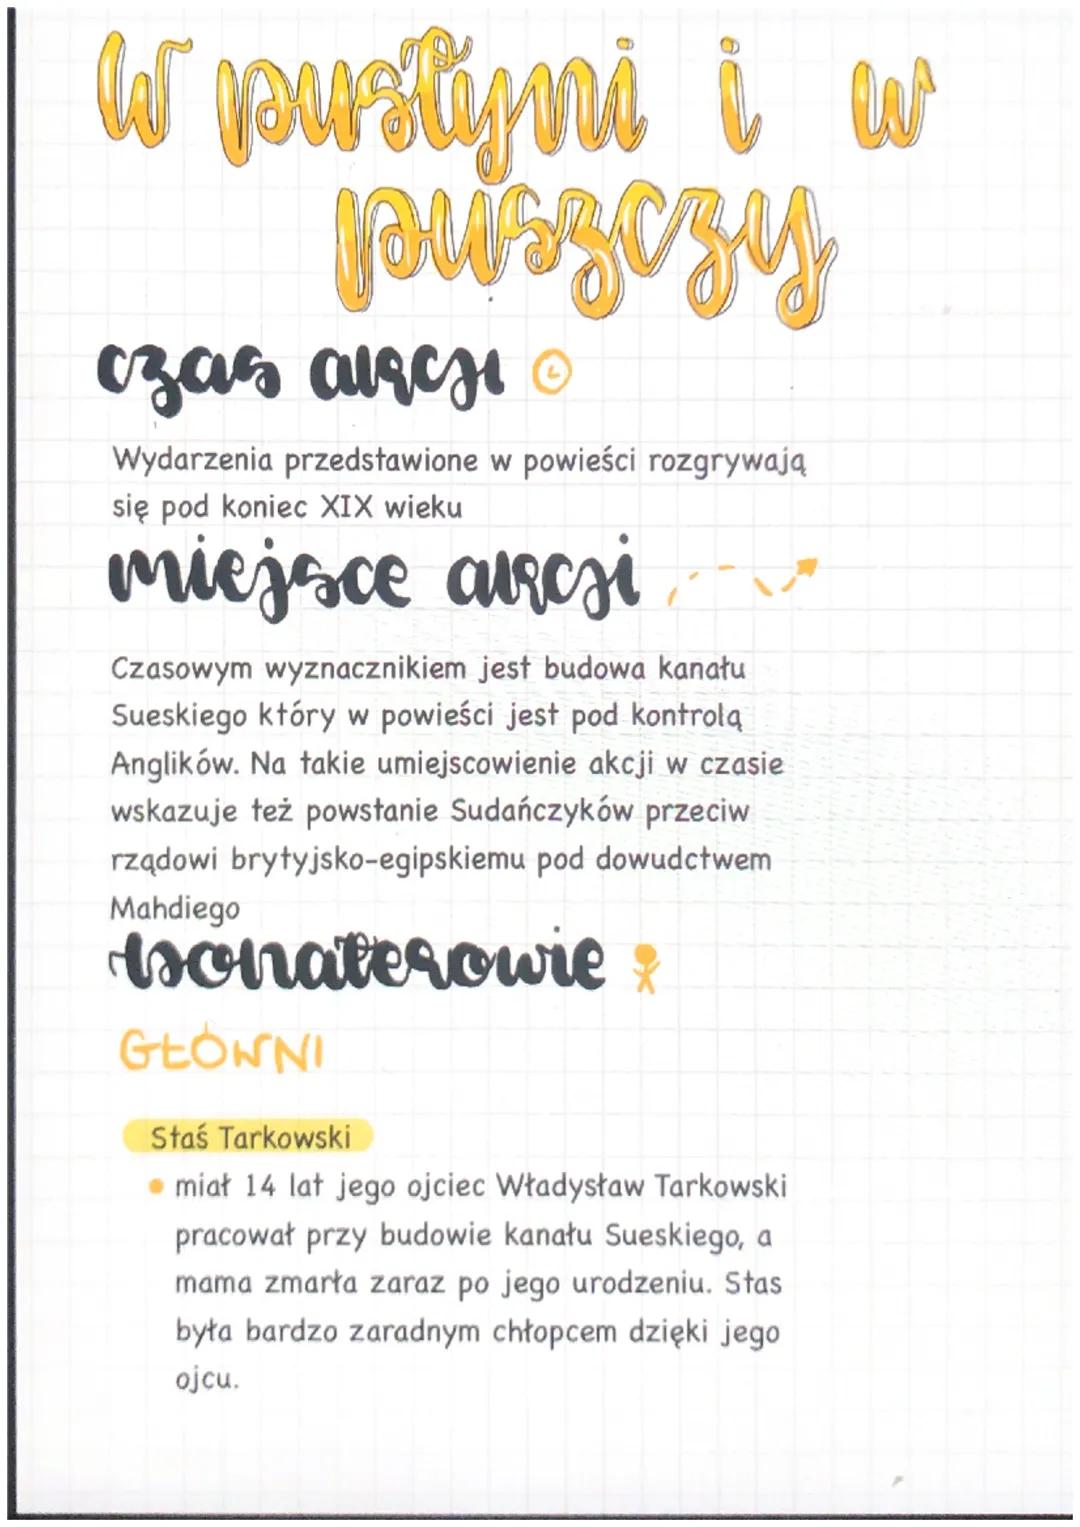 W pustyni i w
puszczy
czas akcji
Wydarzenia przedstawione w powieści rozgrywają
się pod koniec XIX wieku
miejsce akcji
Czasowym wyznacznikiem jest budowa kanału
Sueskiego który w powieści jest pod kontrolą
Anglików. Na takie umiejscowienie akcji w czasie
wskazuje też powstanie Sudańczyków przeciw
rządowi brytyjsko-egipskiemu pod dowudctwem
Mahdiego
bohaterowie
GŁÓWNI
Staś Tarkowski
miał 14 lat jego ojciec Władysław Tarkowski
pracował przy budowie kanału Sueskiego, a
mama zmarła zaraz po jego urodzeniu. Stas
była bardzo zaradnym chłopcem dzięki jego
ojcu.